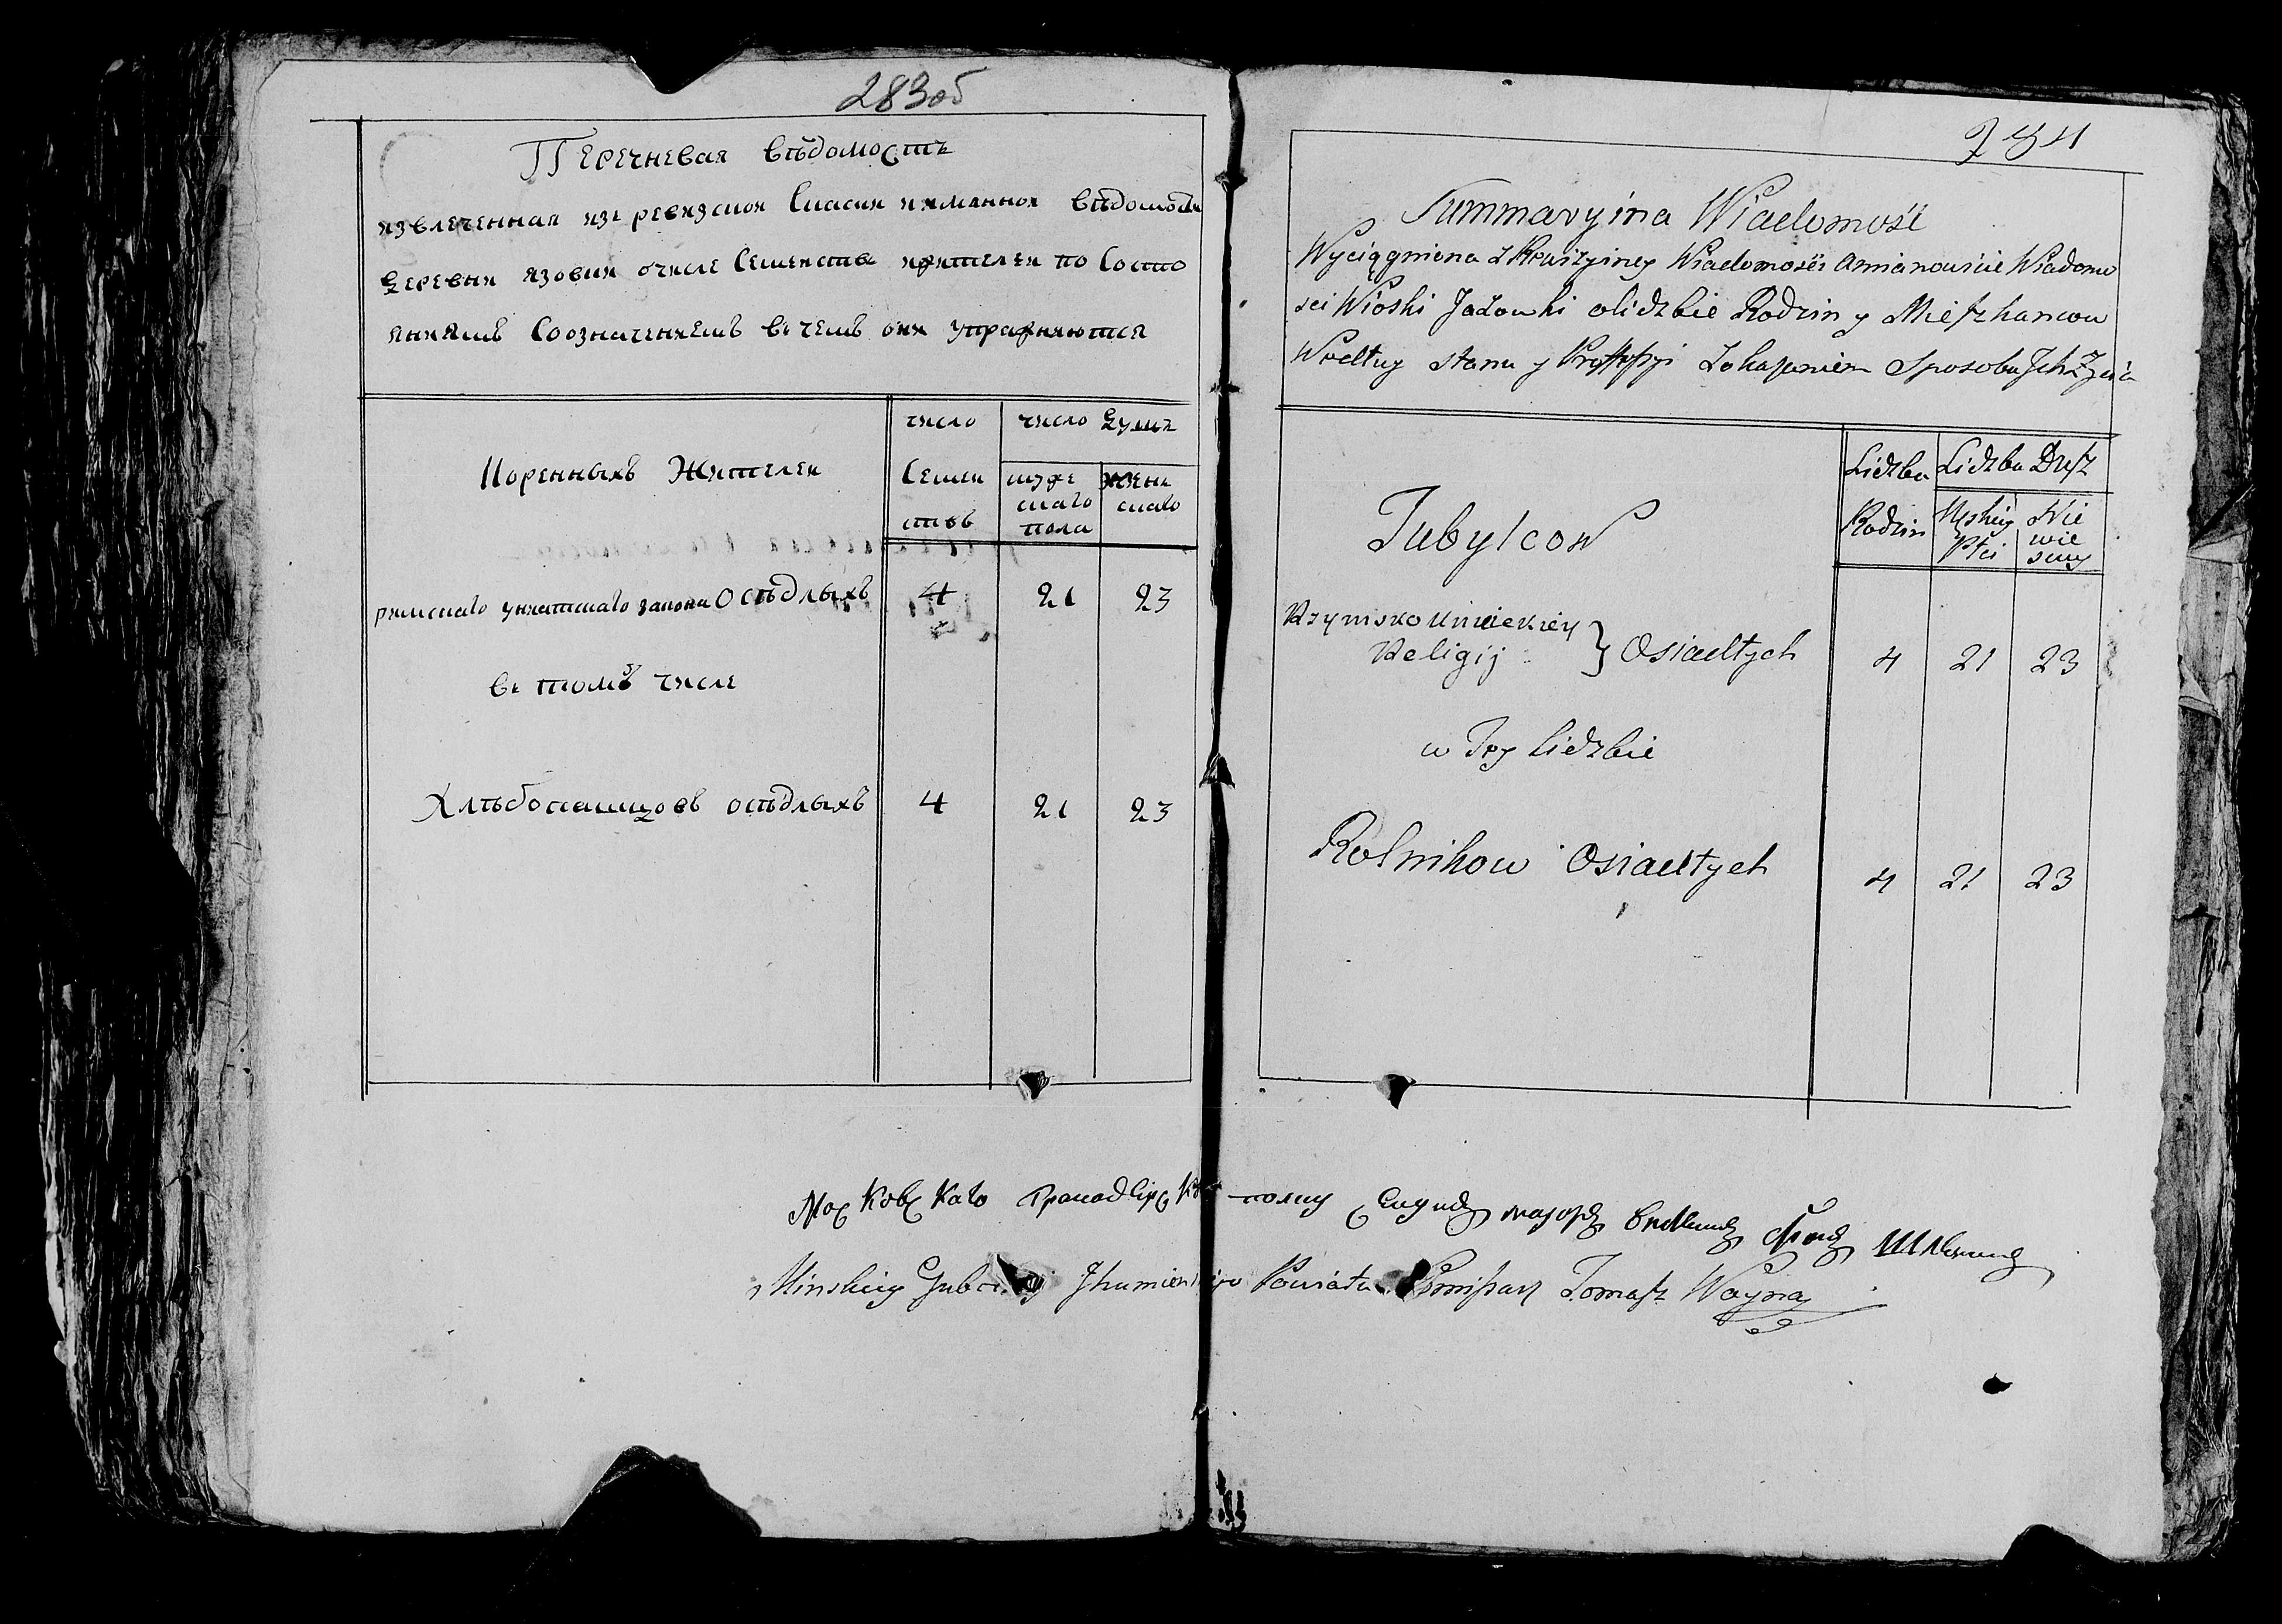 283об
Перечневая вѣдомость
извлеченная изъ ревизской Сказки имянной вѣдомости
деревни язовки о числе Семействъ жителей по Состо
яниямъ Со означениемъ въ чемъ они упражняются
Коренныхъ Жителей
число
Семей
ствъ
число душъ
муже
скаго
пола
жен
скаго
римскаго униатскаго закона Осѣдлыхъ 4 21 23
въ томъ числе
Хлѣбопашцовъ осѣдлыхъ 4 21 23
284
Summaryina Wiadomość
Wyciągniona z Rewizyiney Wiadomości Amianowicie Wiadomo
sci Wioski Jazowki o lidzbie Rodzin y Mieszkancow
Wedlug stanu y Proffessyi Z okazaniem Sposobu Jch Życia
Tubylcow
Lidzba
Rodzin
Lidzba Dusz
Męskiey
Płci
Nie
wie
sciey
Rzymsko Unickiey
Religij } Osiadłych 4 21 23
w Tey lidzbie
Rolnikow Osiadłych 4 21 23
Московскаго Гранадирска полку Секундъ маиоръ
Minskiey Gubernij Jhumenskiego Powiatu Tomasz Woyna